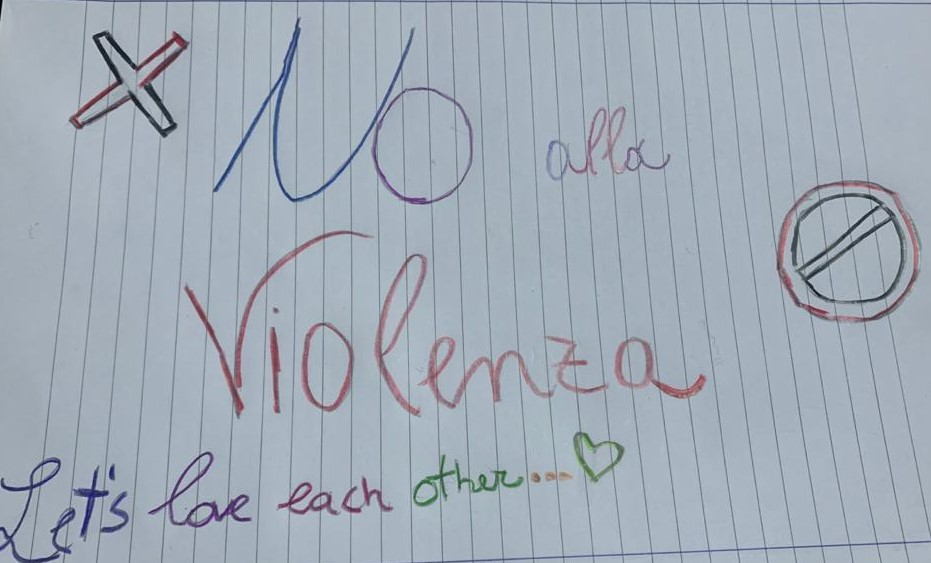 No alla
Violenza
Let's love each other....